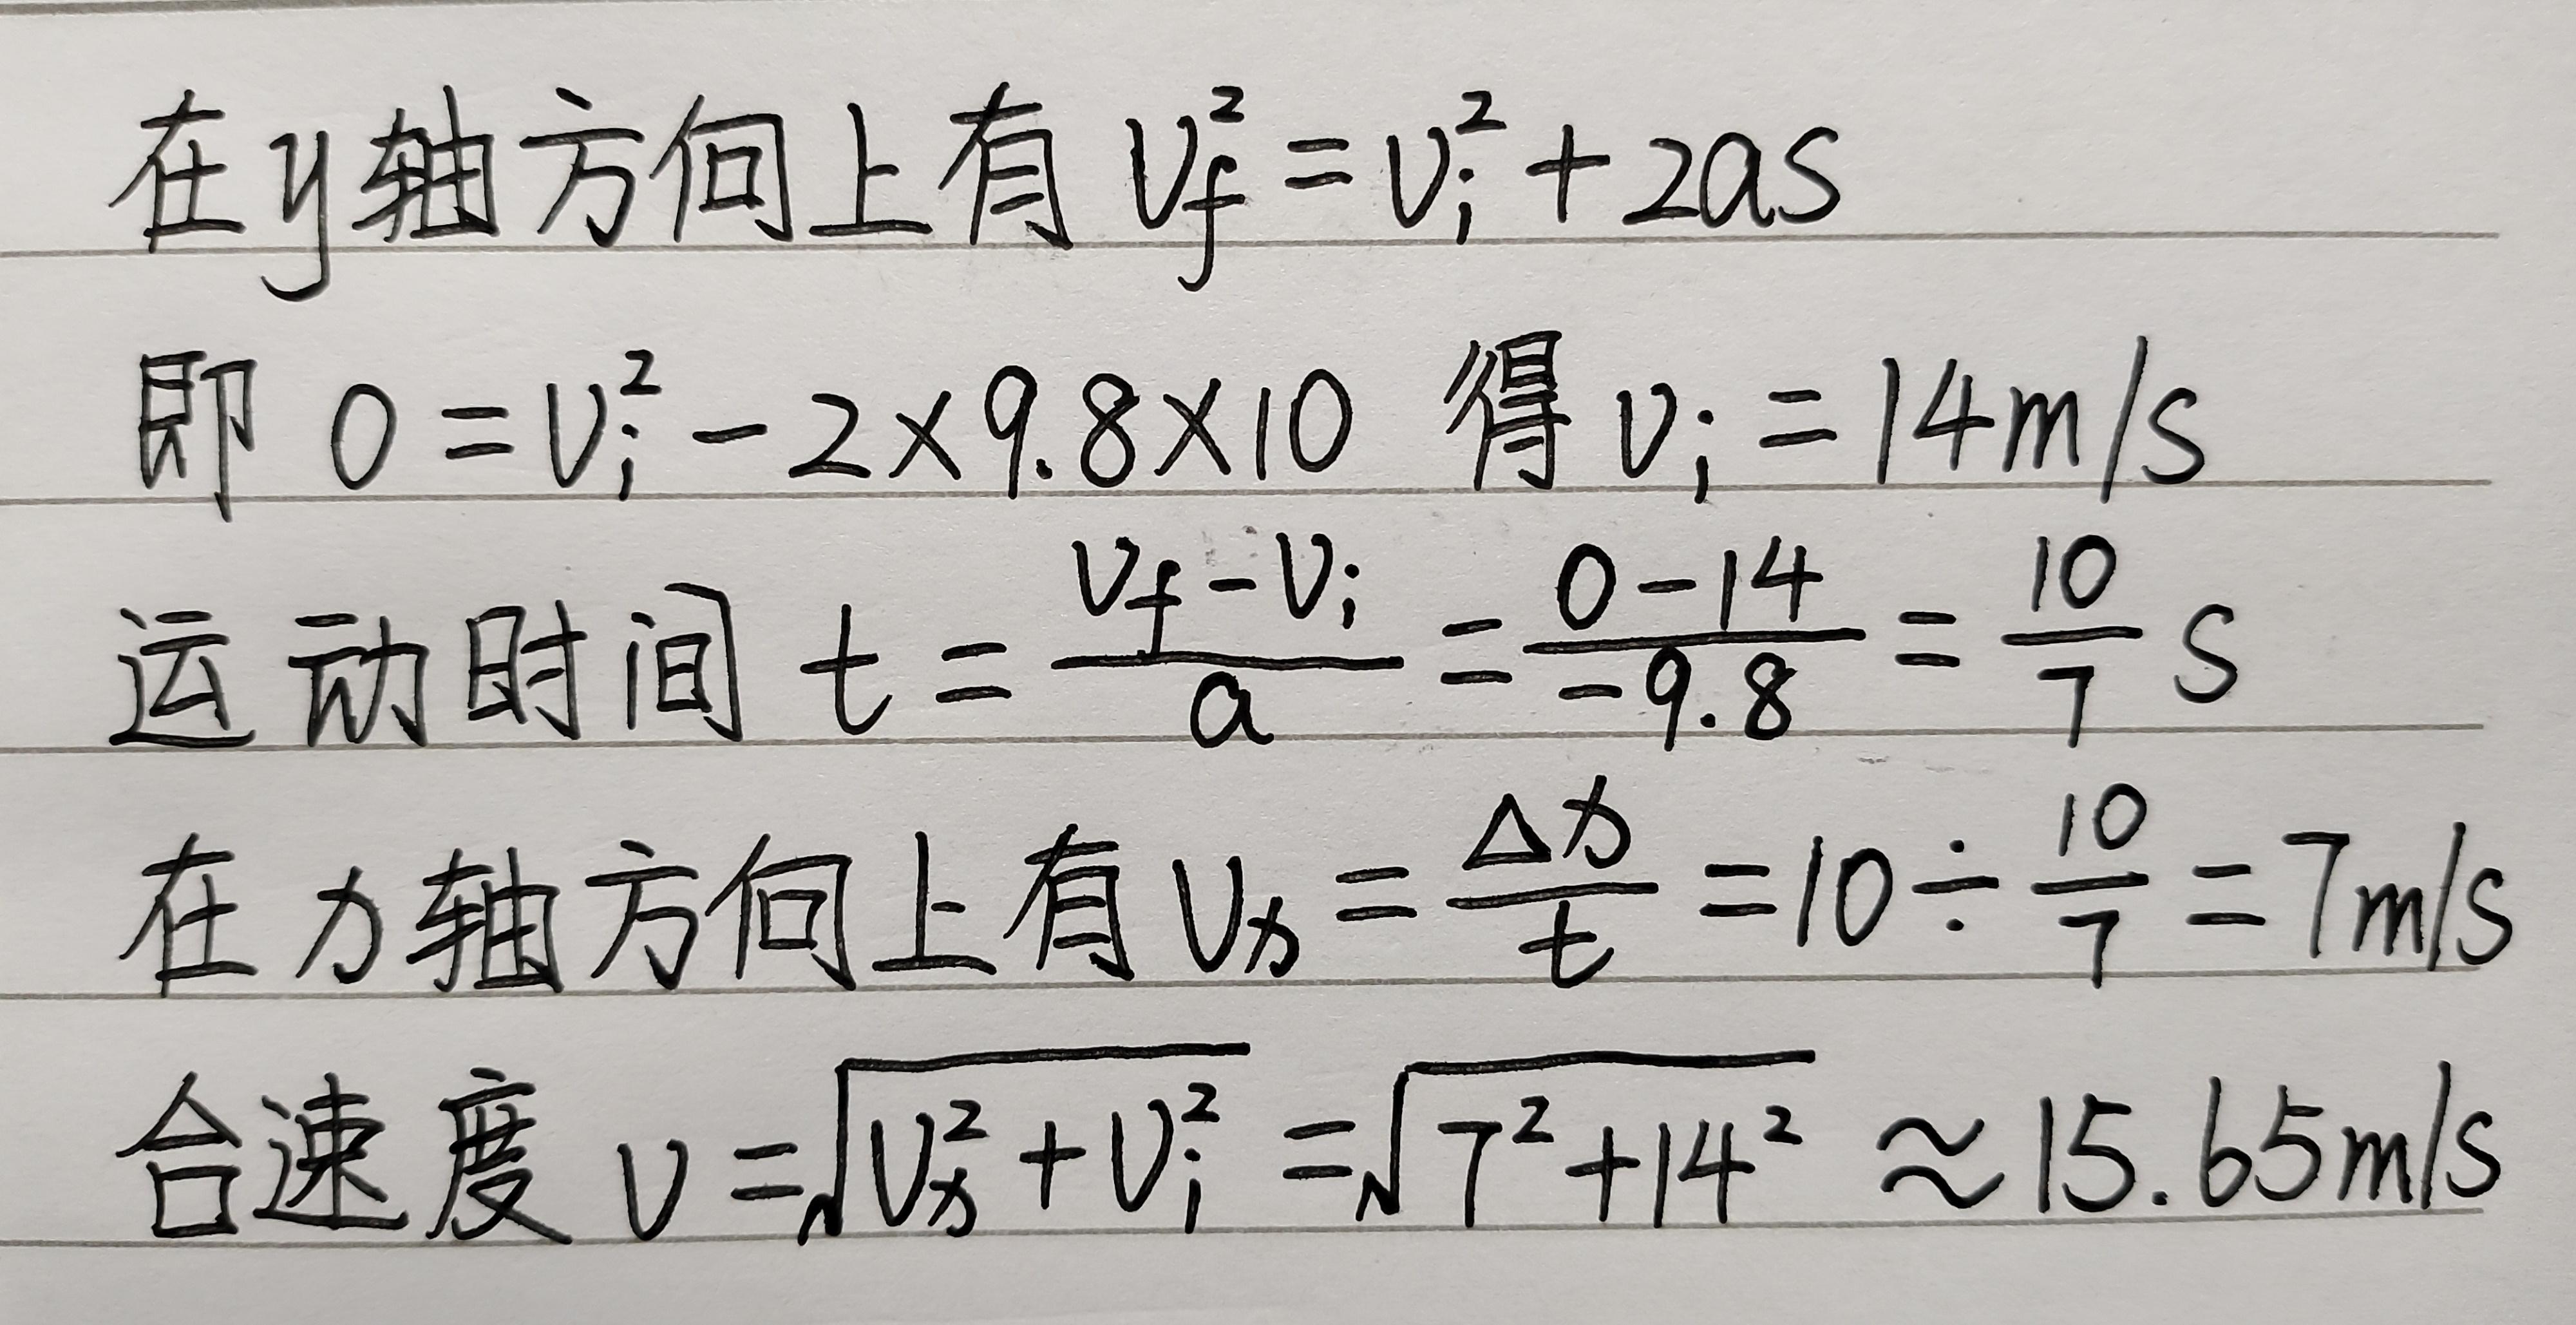 在y轴方向上有 v_f² = v_i² + 2as
即 0 = v_i² - 2×9.8×10 得 v_i = 14m/s
运动时间 t = (v_f - v_i)/a = (0-14)/(-9.8) = 10/7 s
在x轴方向上有 v_x = Δx/t = 10÷10/7 = 7m/s
合速度 v = √(v_x² + v_i²) = √(7²+14²) ≈ 15.65m/s